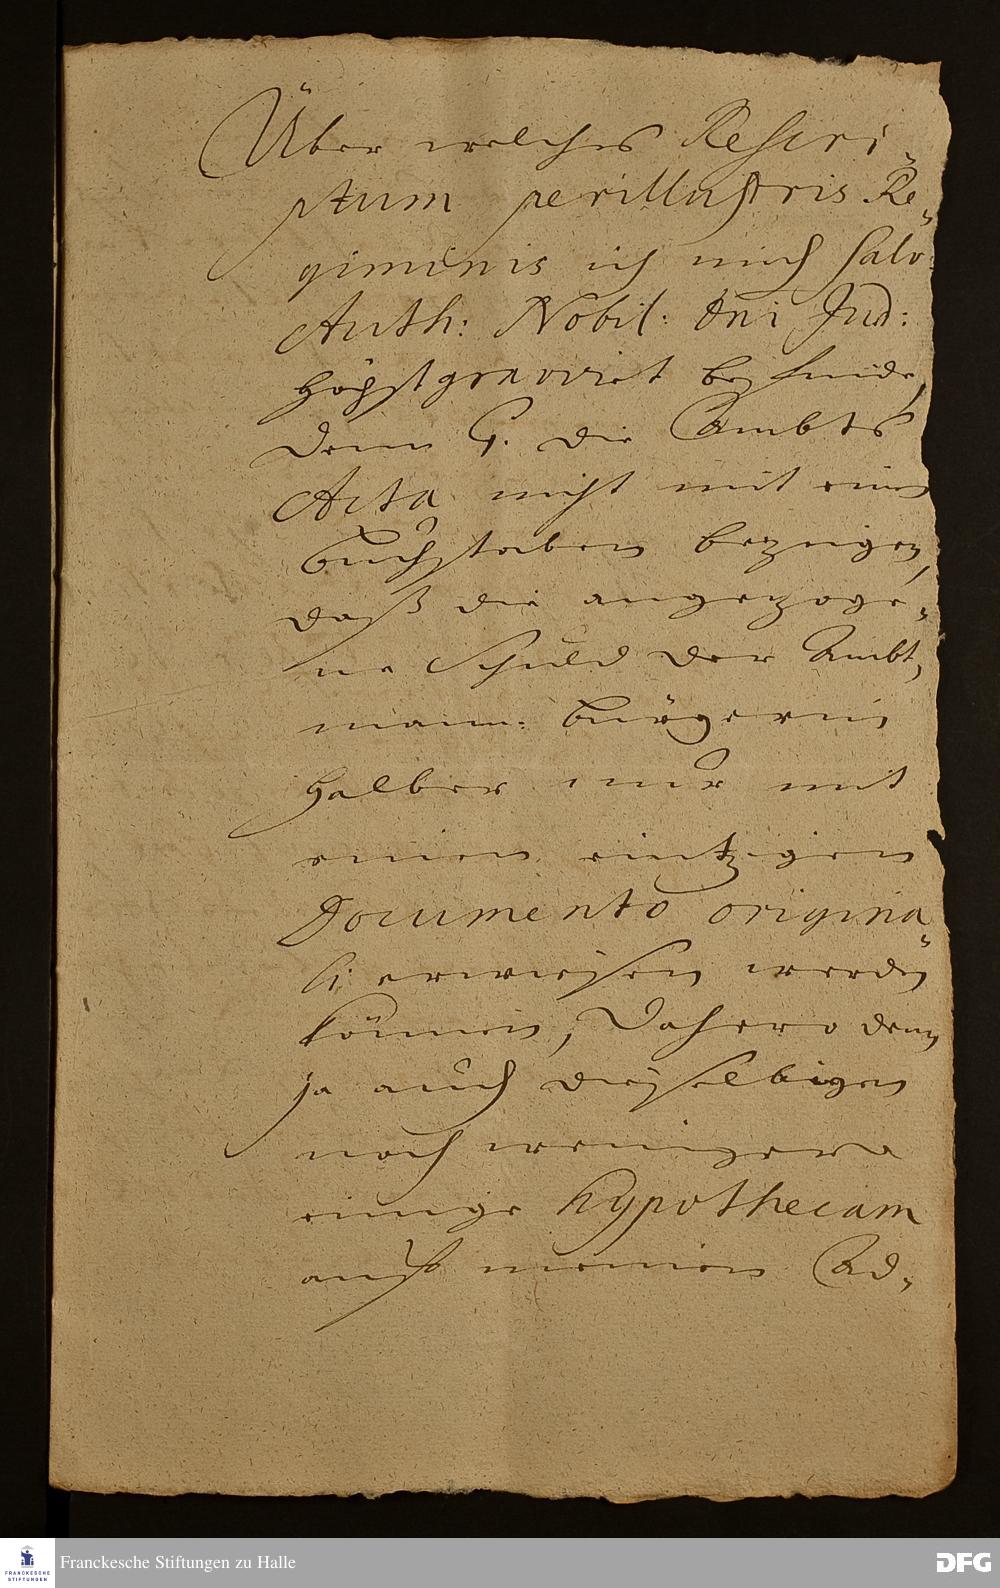 Über welches Rescri-
ptum perillustris Re-
giminis ich mich salv:
Auth: Nobil: Dni Jud:
höchst gravirt befinde,
denn 1. die Ambts
Acta nicht mit einen
buchstaben bezeigen,
daß die angezoge-
ne Schuld der Ambt,
mann: bürgerin
halber nur mit
einen eintzigen
Documento origina-
li erwiesen werden
können, Dahero denn
ja auch dieselbigen
noch weniger
einige hypothecam
auff meinen Ad-
Franckesche Stiftungen zu Halle
FRANCKESCHE
STIFTUNGEN
DFG